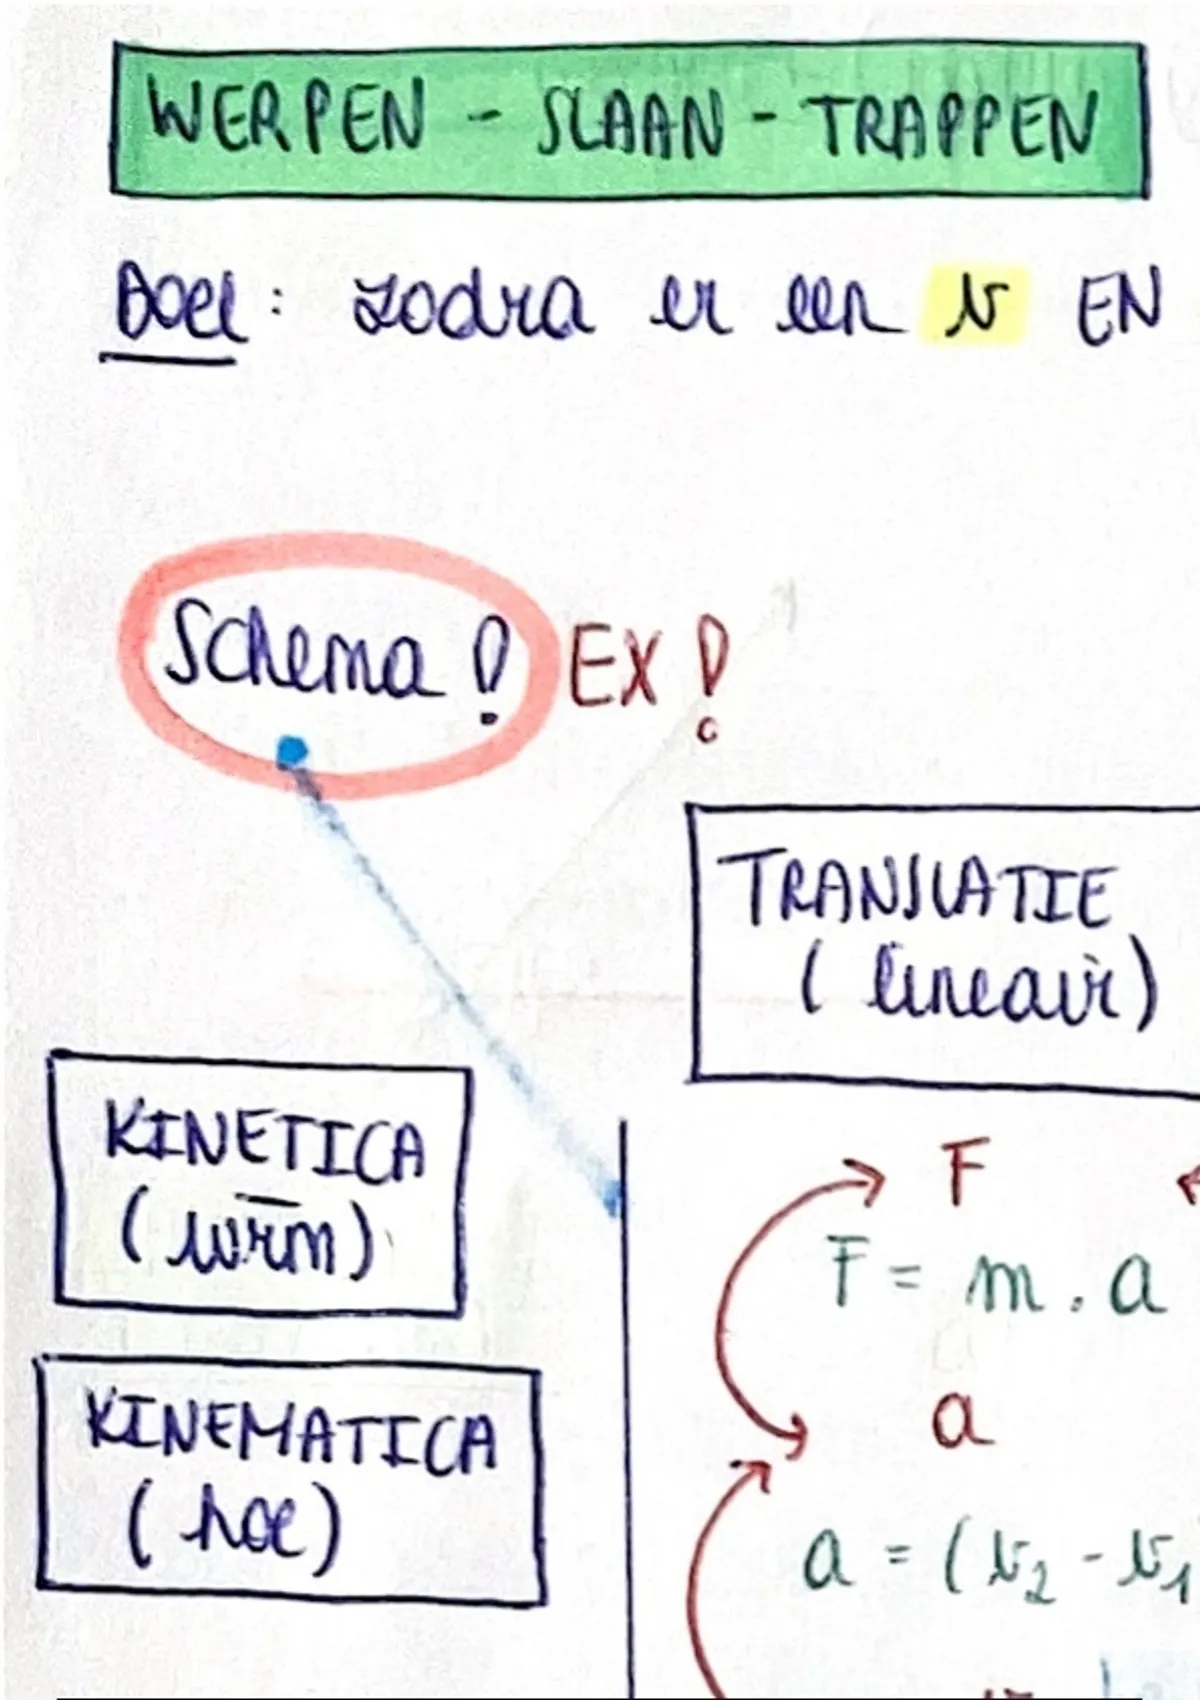 WERPEN - SLAAN - TRAPPEN
Doel: zodra er een v EN
Schema! EX!
TRANSLATIE
(lineair)
KINETICA
F
F = m . a
KINEMATICA
(hoe)
a
a = (v₂ - v₁